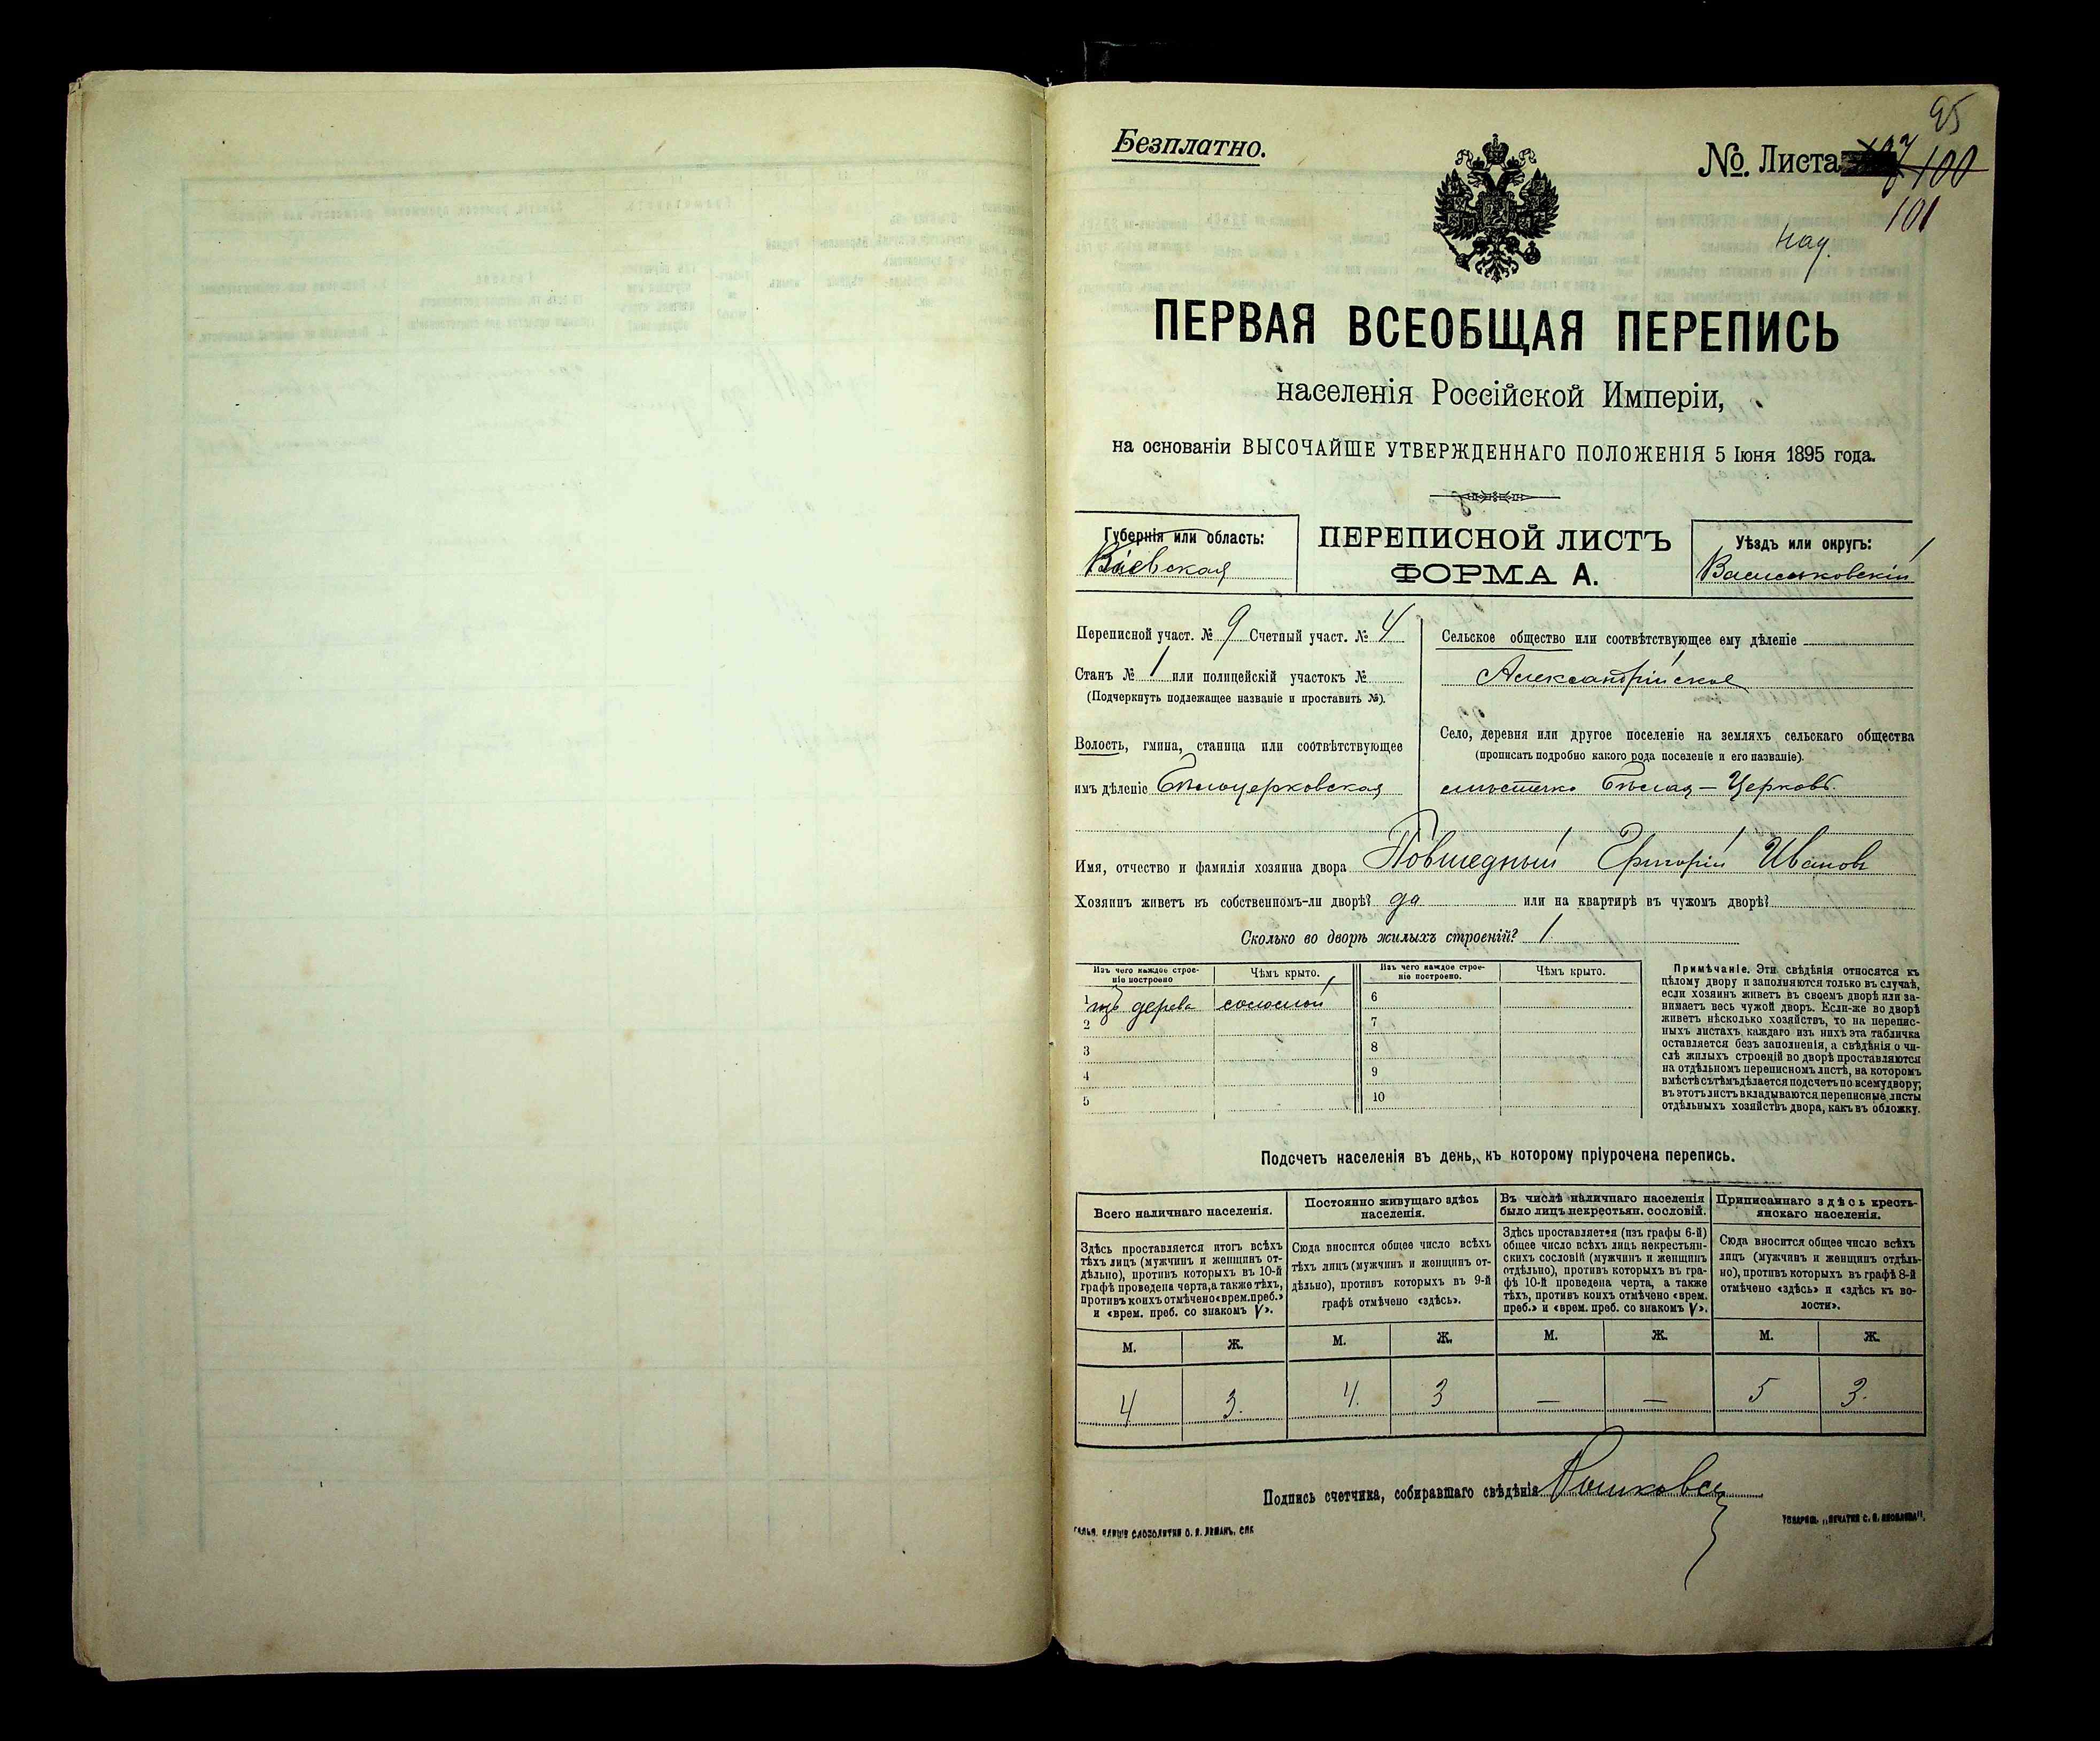 95
Безплатно.
№. Листа 100
101
ПЕРВАЯ ВСЕОБЩАЯ ПЕРЕПИСЬ
населенія Россійской Имперіи,
на основаніи ВЫСОЧАЙШЕ УТВЕРЖДЕННАГО ПОЛОЖЕНІЯ 5 Іюня 1895 года.
Губернія или область:
Кіевская
ПЕРЕПИСНОЙ ЛИСТЪ
ФОРМА А.
Уѣздъ или округъ:
Васильковскій
Переписной участ. № 9 Счетный участ. № 4
Станъ № 1 или полицейскій участокъ №
(Подчеркнуть подлежащее названіе и проставить №).
Волость, гмина, станица или соотвѣтствующее
имъ дѣленіе Бѣлоцерковская
Сельское общество или соотвѣтствующее ему дѣленіе
Александрійское
Село, деревня или другое поселеніе на земляхъ сельскаго общества
(прописать подробно какого рода поселеніе и его названіе).
мѣстечко Бѣлая-Церковь.
Имя, отчество и фамилія хозяина двора Повшедный Григорій Ивановъ
Хозяинъ живетъ въ собственномъ-ли дворѣ? да или на квартирѣ въ чужомъ дворѣ?
Сколько во дворѣ жилыхъ строеній? 1
Изъ чего каждое строе-
ніе построено
Чѣмъ крыто.
Изъ чего каждое строе-
ніе построено.
Чѣмъ крыто.
1 изъ дерева соломой 6
2 7
3 8
4 9
5 10
Примѣчаніе. Эти свѣдѣнія относятся къ
цѣлому двору и заполняются только въ случаѣ,
если хозяинъ живетъ въ своемъ дворѣ или за-
нимаетъ весь чужой дворъ. Если-же во дворѣ
живетъ нѣсколько хозяйствъ, то на перепис-
ныхъ листахъ каждаго изъ нихъ эта табличка
оставляется безъ заполненія, а свѣдѣнія о чи-
слѣ жилыхъ строеній во дворѣ проставляются
на отдѣльномъ переписномъ листѣ, на которомъ
вмѣстѣ съ тѣмъ дѣлается подсчетъ по всему двору;
въ этотъ листъ вкладываются переписные листы
отдѣльныхъ хозяйствъ двора, какъ въ обложку.
Подсчетъ населенія въ день, къ которому пріурочена перепись.
Всего наличнаго населенія.
Здѣсь проставляется итогъ всѣхъ
тѣхъ лицъ (мужчинъ и женщинъ от-
дѣльно), противъ которыхъ въ 10-й
графѣ проведена черта, а также тѣхъ,
противъ коихъ отмѣчено «врем. преб.»
и «врем. преб. со знакомъ V».
Постоянно живущаго здѣсь
населенія.
Сюда вносится общее число всѣхъ
тѣхъ лицъ (мужчинъ и женщинъ от-
дѣльно), противъ которыхъ въ 9-й
графѣ отмѣчено «здѣсь».
Въ числѣ наличнаго населенія
было лицъ некрестьян. сословій.
Здѣсь проставляется (изъ графы 6-й)
общее число всѣхъ лицъ некрестьян-
скихъ сословій (мужчинъ и женщинъ
отдѣльно), противъ которыхъ въ гра-
фѣ 10-й проведена черта, а также
тѣхъ, противъ коихъ отмѣчено «врем.
преб.» и «врем. преб. со знакомъ V».
Приписаннаго здѣсь кресть-
янскаго населенія.
Сюда вносится общее число всѣхъ
лицъ (мужчинъ и женщинъ отдѣль-
но), противъ которыхъ въ графѣ 8-й
отмѣчено «здѣсь» и «здѣсь къ во-
лости».
М. Ж. М. Ж. М. Ж. М. Ж.
4 3. 4. 3 — — 5 3.
Подпись счетчика, собиравшаго свѣдѣнія